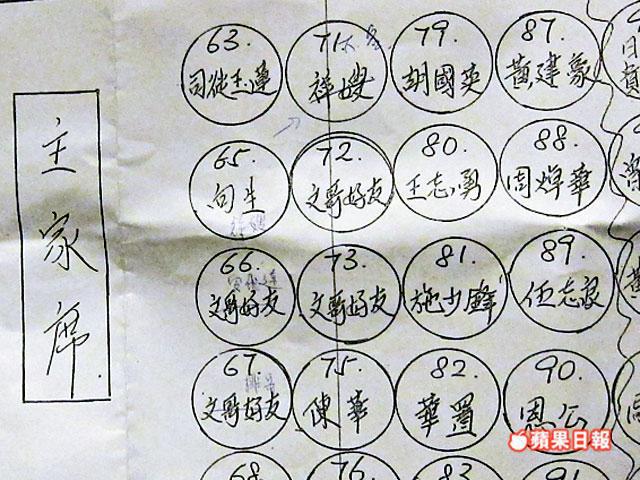 主家席
63.
司徒玉蓮
71
祥嫂
79.
胡國英
87.
黃建豪
65.
向生
72.
文哥好友
80.
王志勇
88.
周焯華
66.
文哥好友
73.
文哥好友
81.
施少鋒
89.
伍志良
67.
文哥好友
75.
陳華
82.
華置
90.
恩公
68.
76.
83
91
蘋果日報